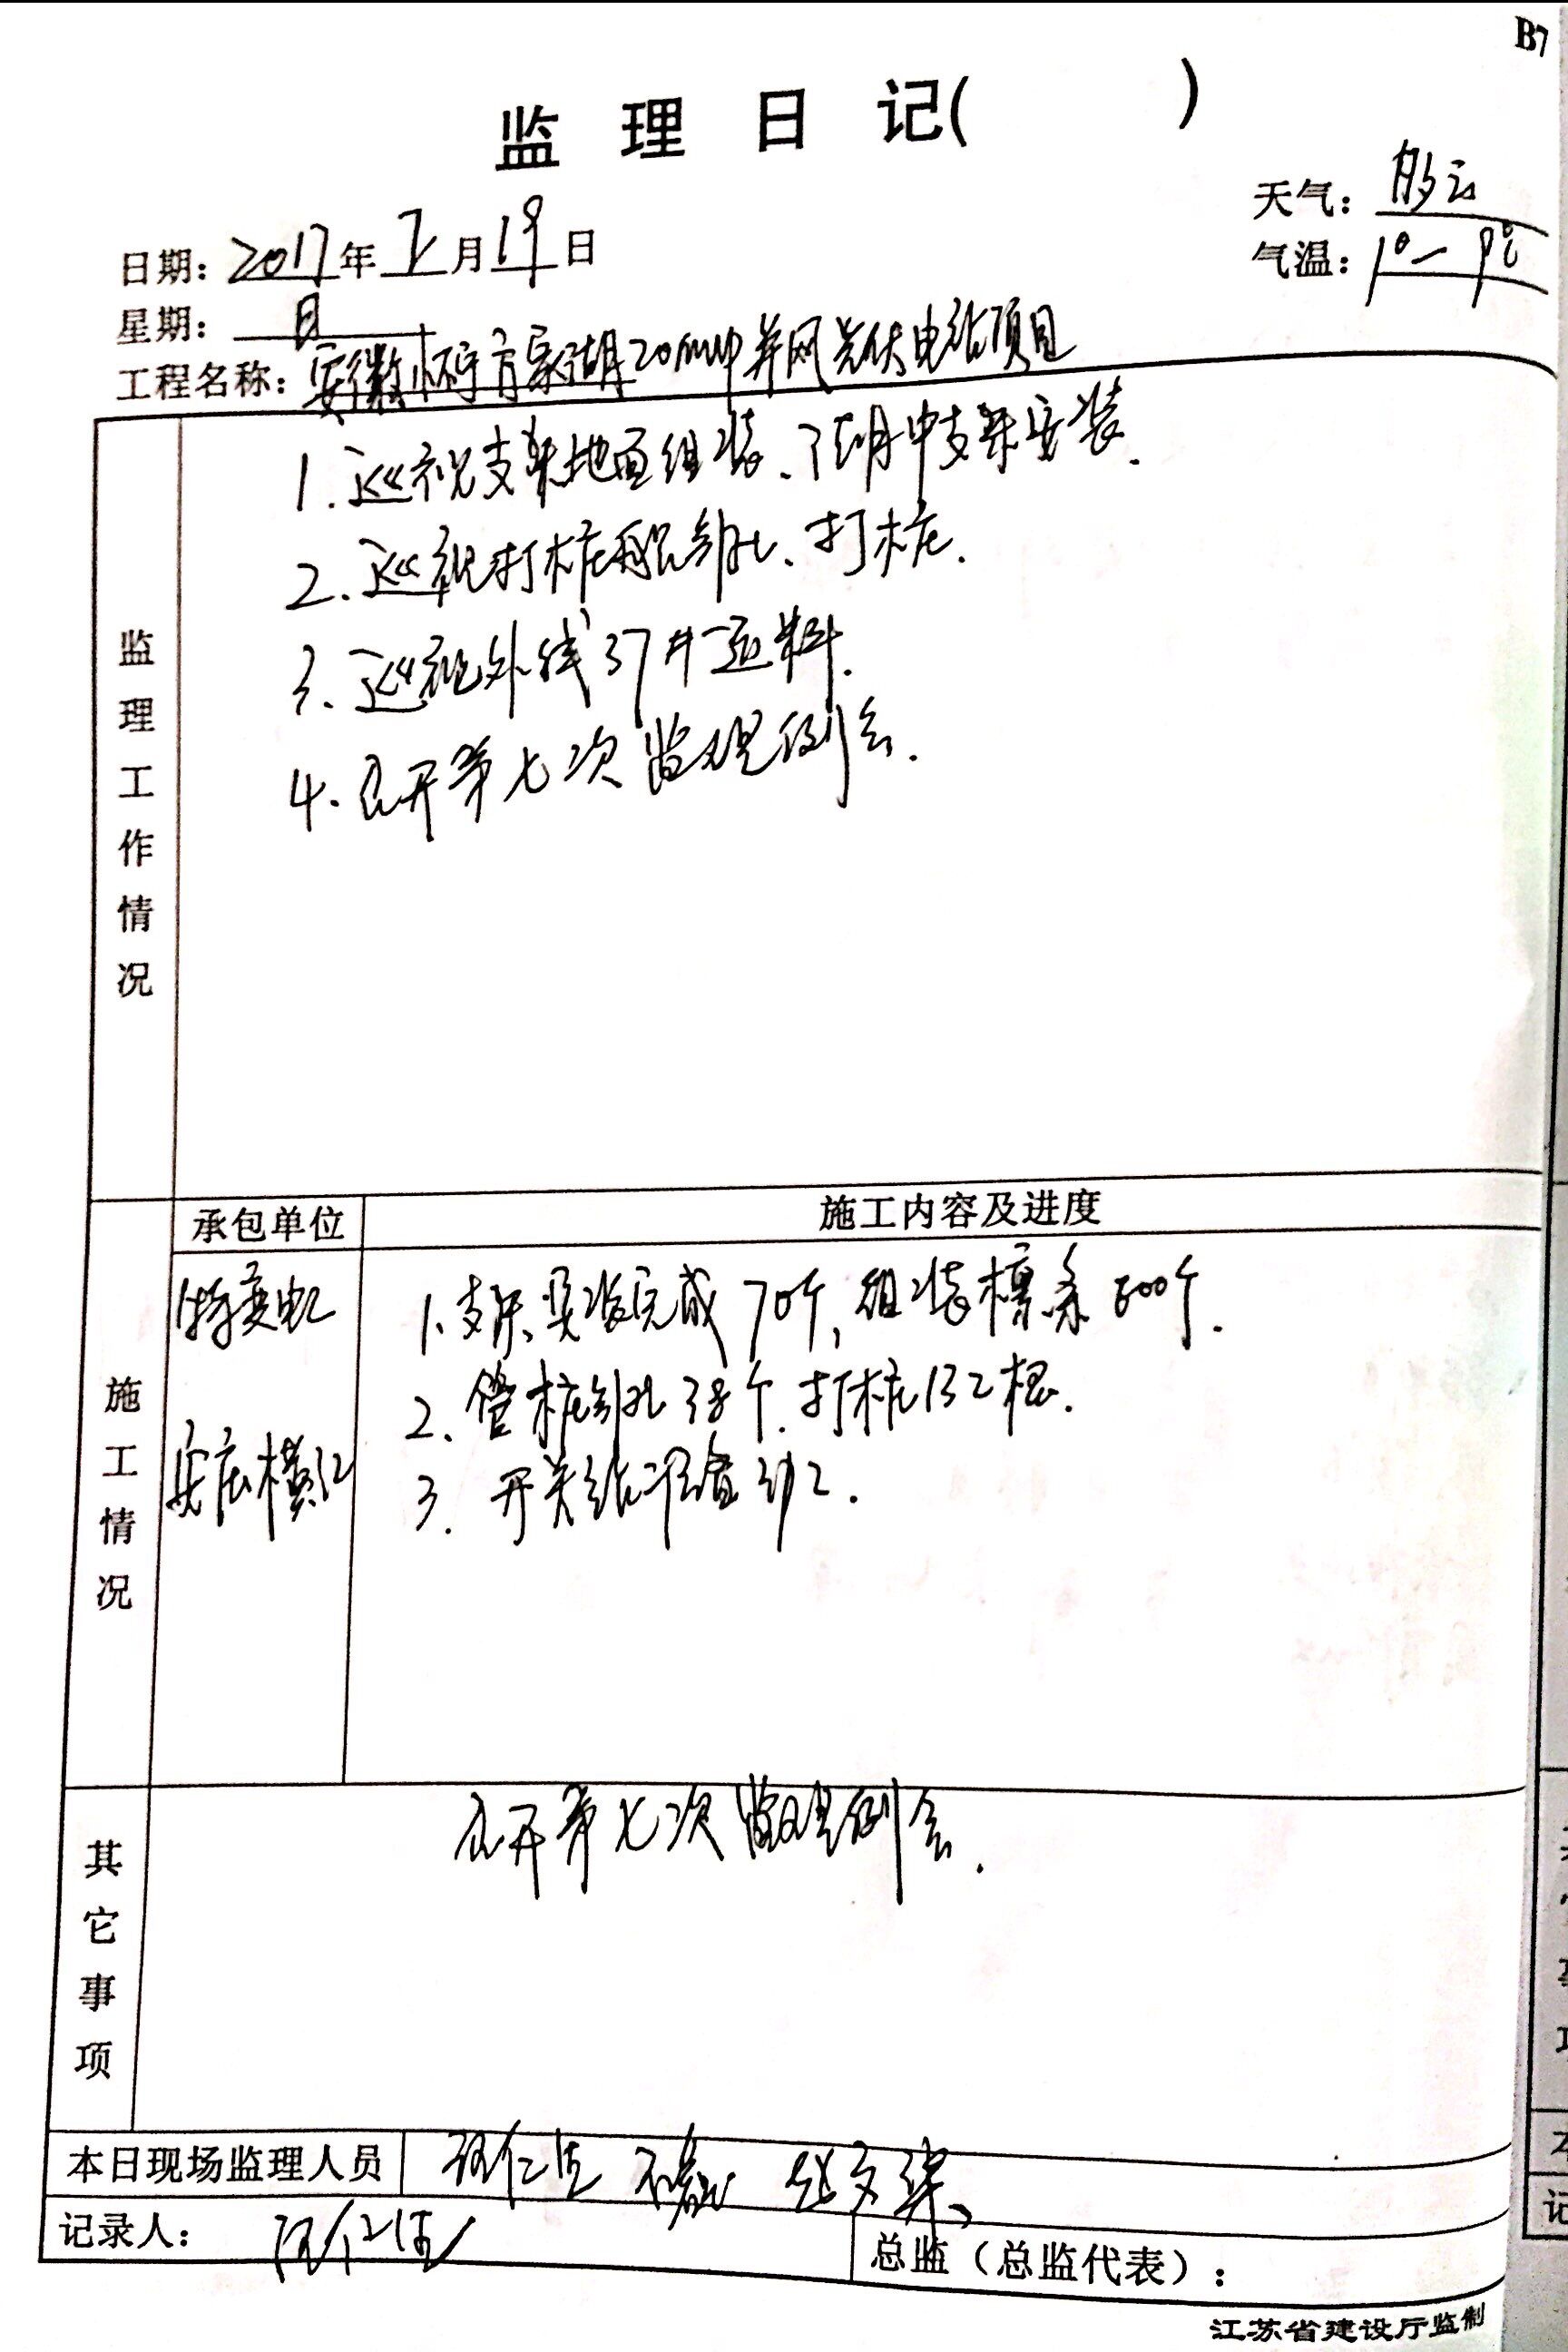 B7
监理日记( )
天气：多云
日期：2017年2月19日
气温：1°— 9℃
星期：日
工程名称：安徽怀宁方家湖20MWP并网光伏电站项目
监理工作情况
1.巡视支架地面组装、支架安装.
2.巡视打桩引孔、打桩.
3.巡视外线37#进料.
4.召开第七次监理例会.
施工情况
承包单位
施工内容及进度
特变电工
1.支架安装完成70个,组装檩条500个.
2.管桩引孔38个.打桩132根.
安庆横江
3.开关站准备施工.
其它事项
召开第七次监理例会.
本日现场监理人员
记录人：
总监（总监代表）：
江苏省建设厅监制